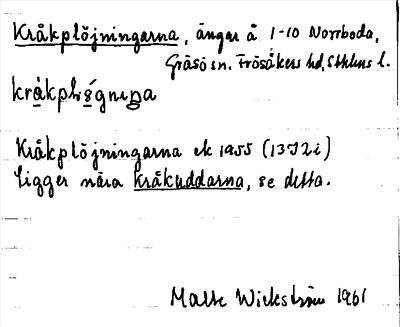 Kråkplöjningarna, ängar å 1-10 Norrboda,
Gräsö sn. Frösåkers hd, Sthlms l.
Kråkplöjningarna ek 1955 (13I2i)
ligger nära Kråkuddarna, se detta.
Malte Wickström 1961